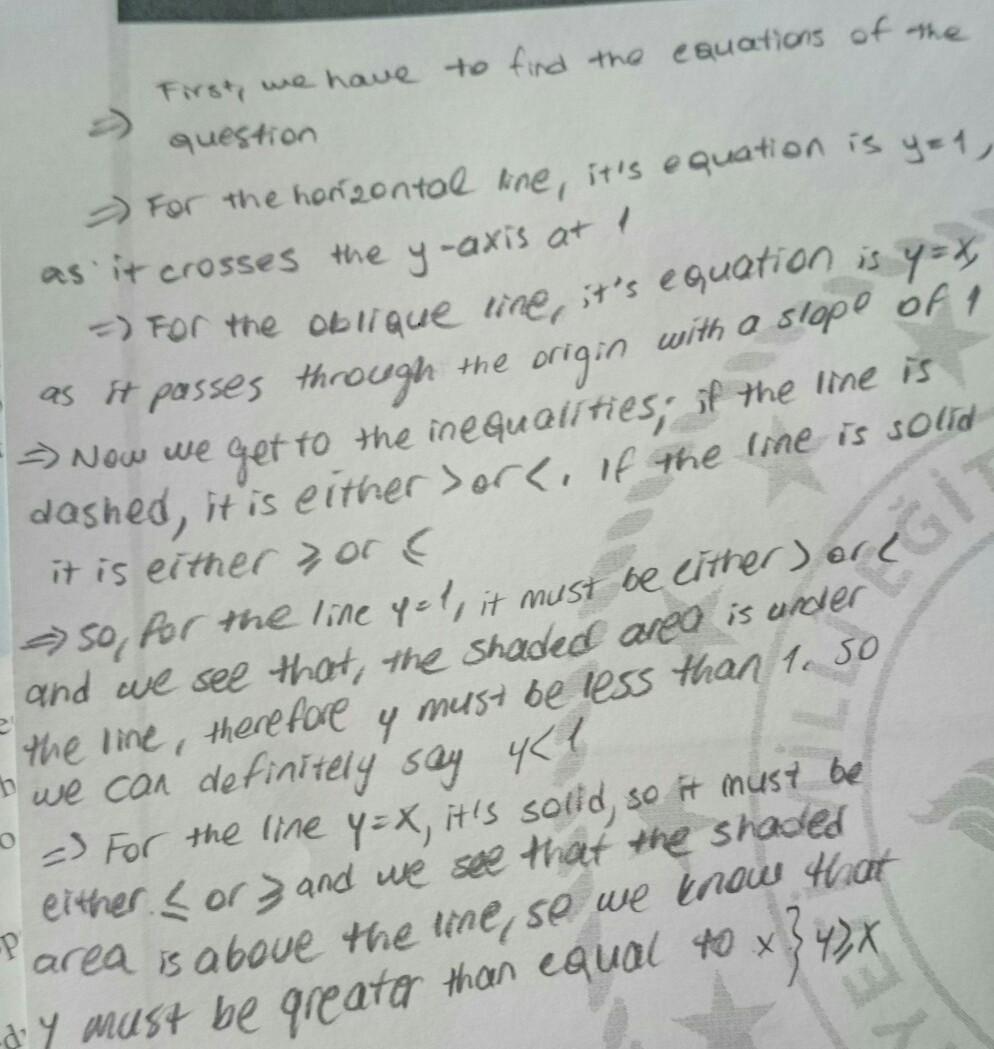 First, we have to find the equations of the
⇒ question
⇒ For the horizontal line, it's equation is y=1,
as it crosses the y-axis at 1
⇒ For the oblique line, it's equation is y=x,
as it passes through the origin with a slope of 1
⇒ Now we get to the inequalities; if the line is
dashed, it is either > or <. If the line is solid
it is either ⩾ or ⩽
⇒ so, for the line y=1, it must be either > or <
and we see that, the shaded area is under
the line, therefore y must be less than 1. so
we can definitely say y<1
⇒ For the line y=x, it's solid, so it must be
either ≤ or ⩾ and we see that the shaded
area is above the line, so we know that
y must be greater than equal to x } y⩾x
MİLLÎ EĞİT